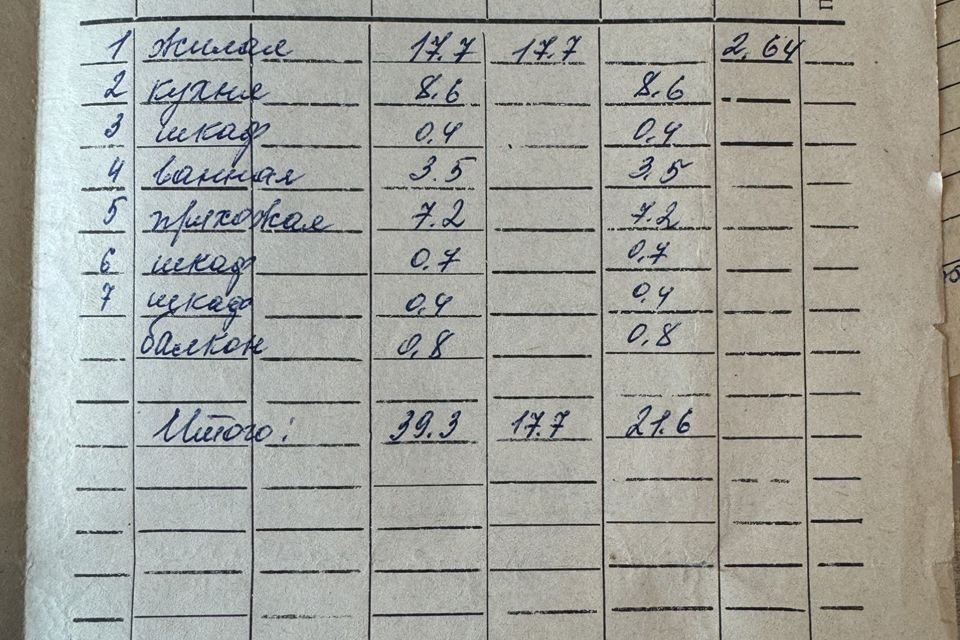 1 жилая 17.7 17.7 2.64
2 кухня 8.6 8.6
3 шкаф 0.4 0.4
4 ванная 3.5 3.5
5 прихожая 7.2 7.2
6 шкаф 0.7 0.7
7 шкаф 0.4 0.4
балкон 0.8 0.8
Итого: 39.3 17.7 21.6